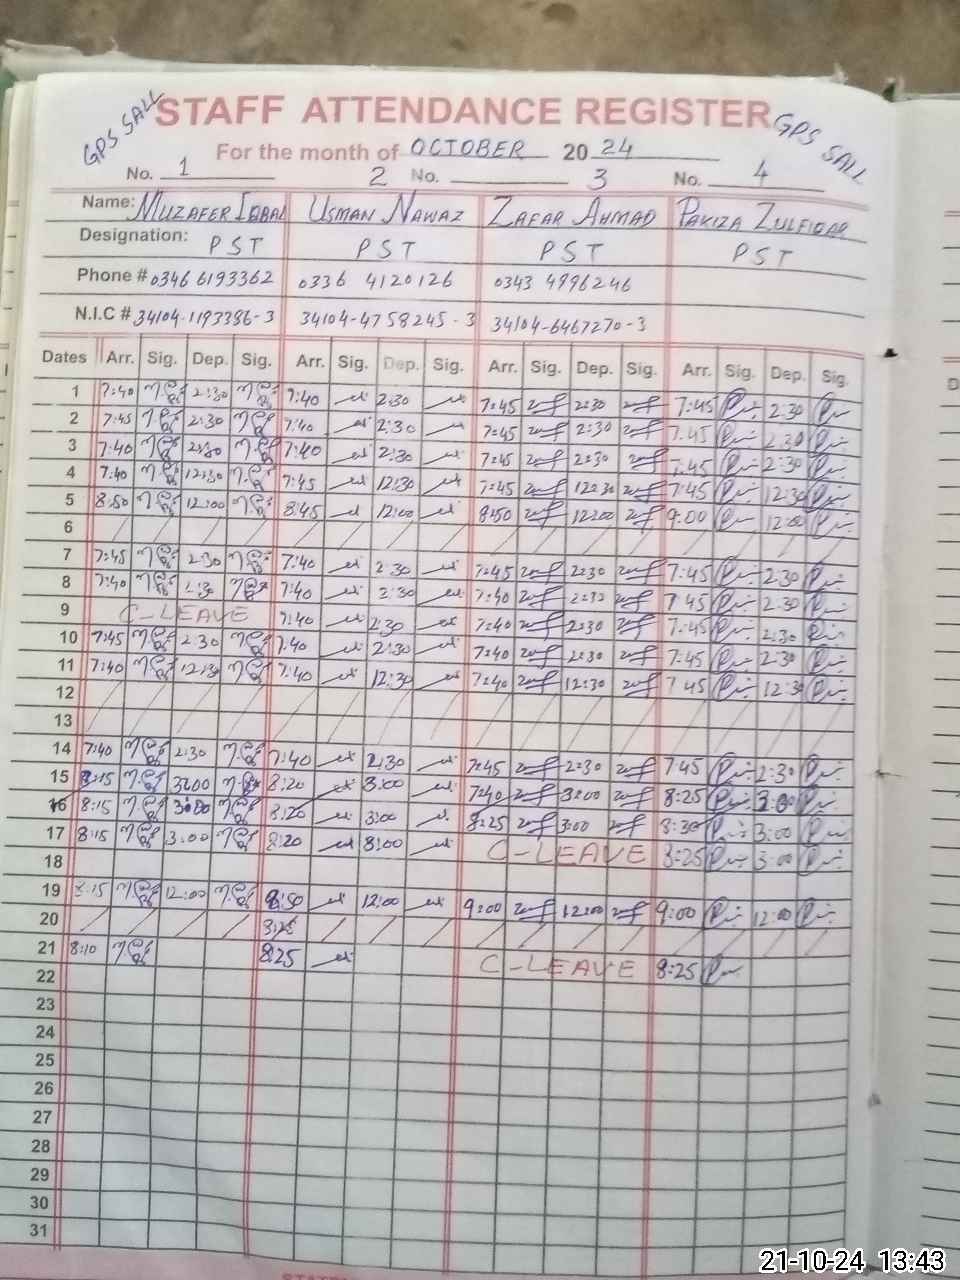 GPS SALL STAFF ATTENDANCE REGISTER GPS SALL
For the month of OCTOBER 20 24
No. 1 2 No. 3 No. 4
Name: MUZAFER IQBAL USMAN NAWAZ ZAFAR AHMAD PAKIZA ZULFIQAR
Designation: PST PST PST PST
Phone # 0346 6193362 0336 4120126 0343 4996246
N.I.C # 34104-1193386-3 34104-4758245-3 34104-6467270-3
Dates Arr. Sig. Dep. Sig. Arr. Sig. Dep. Sig. Arr. Sig. Dep. Sig. Arr. Sig. Dep. Sig.
1 7:40 2:30 7:40 2:30 7:45 2:30 7:45 2:30
2 7:45 2:30 7:40 2:30 7:45 2:30 7:45 2:30
3 7:40 2:30 7:40 2:30 7:45 2:30 7:45 2:30
4 7:40 12:30 7:45 12:30 7:45 12:30 7:45 12:30
5 8:50 12:00 8:45 12:00 8:50 12:00 9:00 12:00
6
7 7:45 2:30 7:40 2:30 7:45 2:30 7:45 2:30
8 7:40 2:30 7:40 2:30 7:40 2:30 7:45 2:30
9 C-LEAVE 7:40 2:30 7:40 2:30 7:45 2:30
10 7:45 2:30 7:40 2:30 7:40 2:30 7:45 2:30
11 7:40 12:30 7:40 12:30 7:40 12:30 7:45 12:30
12
13
14 7:40 2:30 7:40 2:30 7:45 2:30 7:45 2:30
15 8:15 3:00 8:20 3:00 7:40 3:00 8:25 3:00
16 8:15 3:00 8:20 3:00 8:25 3:00 8:30 3:00
17 8:15 3:00 8:20 3:00 C-LEAVE 8:25 3:00
18
19 8:15 12:00 8:50 12:00 9:00 12:00 9:00 12:00
20
21 8:10 8:25 C-LEAVE 8:25
22
23
24
25
26
27
28
29
30
31
21-10-24 13:43